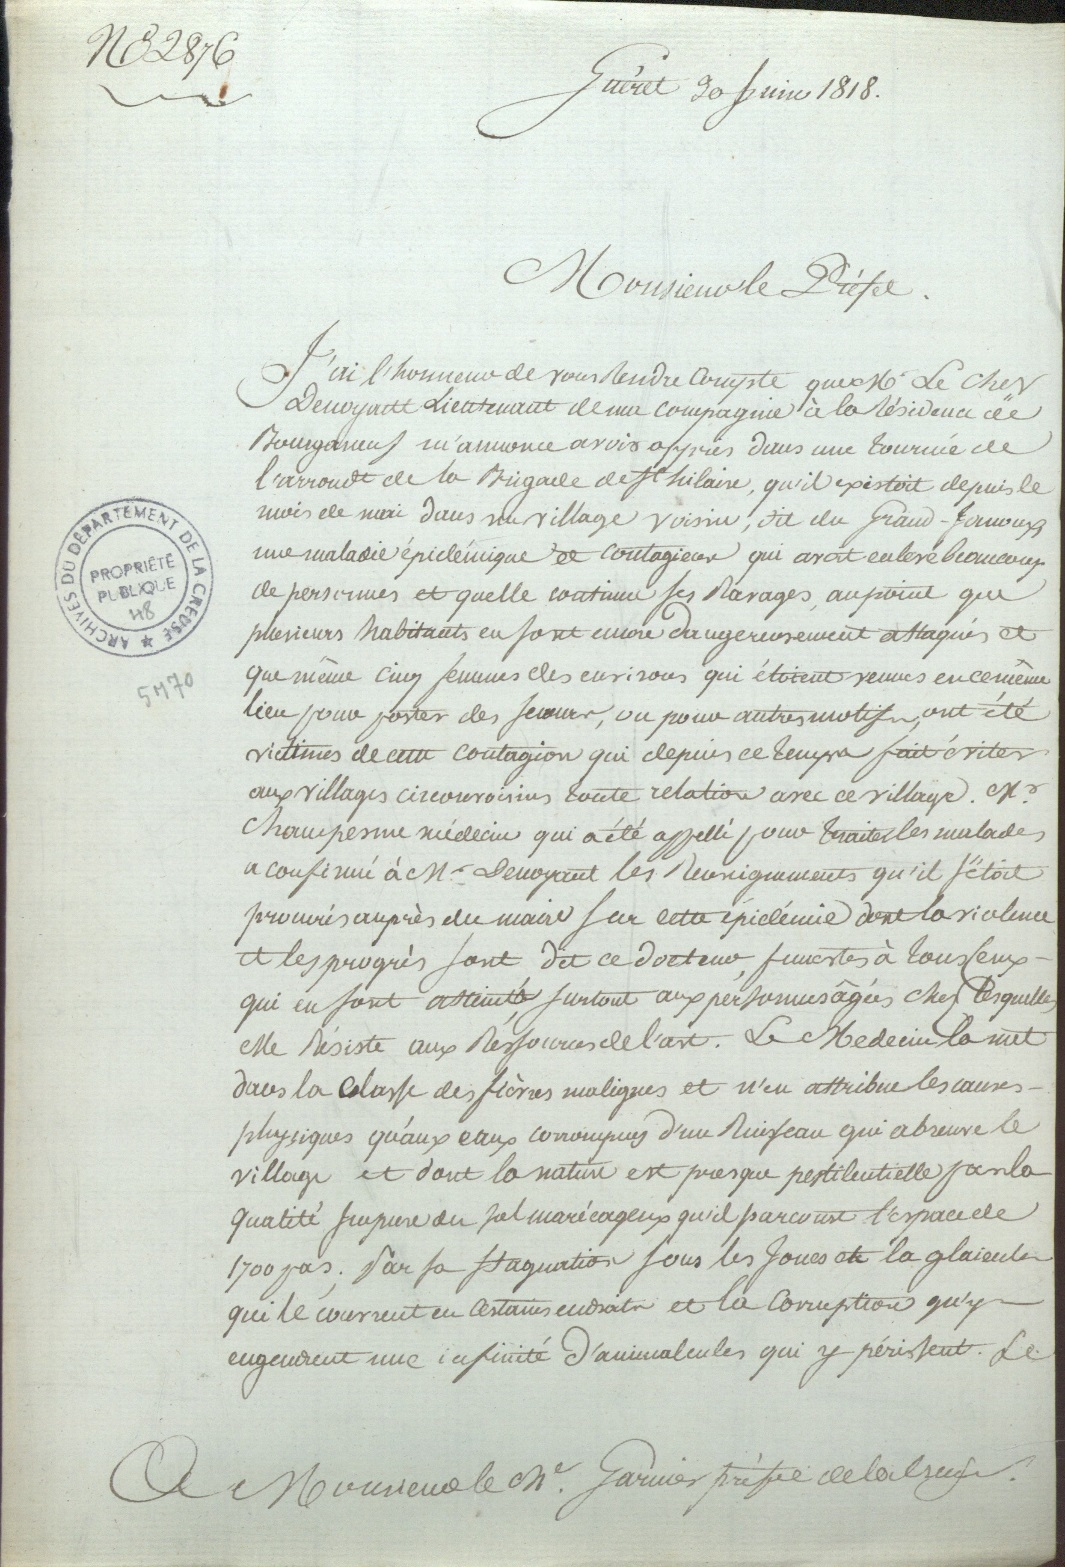 N° 2876
Guéret 30 Juin 1818.
Monsieur le Préfet.
J'ai l'honneur de vous Rendre Compte que Mr Le Cher
Denoyant Lieutenant de ma compagnie à la résidence de
Bourganeuf m'annonce avoir appris dans une tournée de
l'arrondt de la Brigade de St hilaire, qu'il existoit depuis le
mois de mai dans un village voisin, dit du Grand-
une maladie épidémique et contagieuse qui avoit enlevé beaucoup
de personnes et quelle continue ses Ravages, au point que
plusieurs habitants en sont encore dangereusement attaqués et
que même cinq femmes des environs qui étoient venues en ce même
lieu pour porter des secours, ou pour autres motifs, ont été
victimes de cette contagion qui depuis ce temps fait éviter
aux villages circonvoisins toute relation avec ce village. Mr
Champesme médecin qui a été appellé pour traiter les malades
a confirmé à Mr Denoyant les Renseignements qu'il s'étoit
procurés auprès du maire sur cette épidémie dont la violence
et les progrès sont dit ce docteur, funestes à tous ceux
qui en sont atteints surtout aux personnes âgées chez lesquelles
elle Résiste aux Ressources de l'art. Le Medecin la met
dans la Classe des fièvres malignes et n'en attribue les causes
physiques qu'aux eaux corrompues d'un Ruisseau qui abreuve le
village et dont la nature est presque pestilentielle par la
qualité impure du sol marécageux qu'il parcourt l'espace de
1700 pas. Par sa Stagnation sous les Joncs et la glaieuls
qui le couvrent en certains endroits et la Corruption qu'y
engendrent une infinité d'animalcules qui y périssent. Le
A Monsieur le Ch.er Garnier préfet de la Creuse.
ARCHIVES DU DÉPARTEMENT DE LA CREUSE
PROPRIÉTÉ
PUBLIQUE
48
5M70